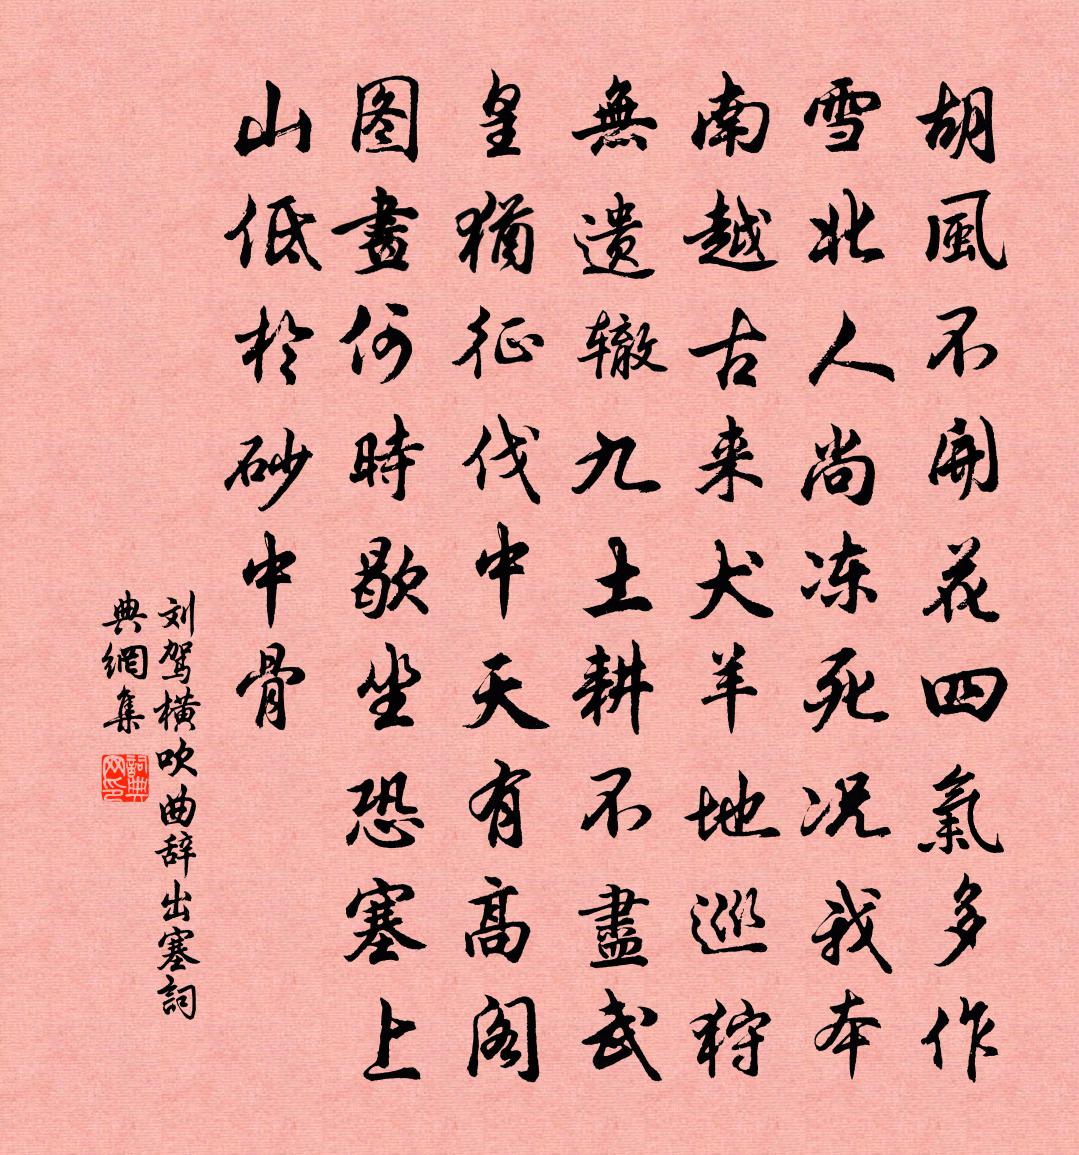 胡風不開花四氣多作
雪北人尚冻死况我本
南越古来犬羊地巡狩
無遗辙九土耕不盡武
皇猶征伐中天有高阁
图畫何時歇坐恐塞上
山低於砂中骨
刘驾横吹曲辞出塞詞
典網集
詞典网印